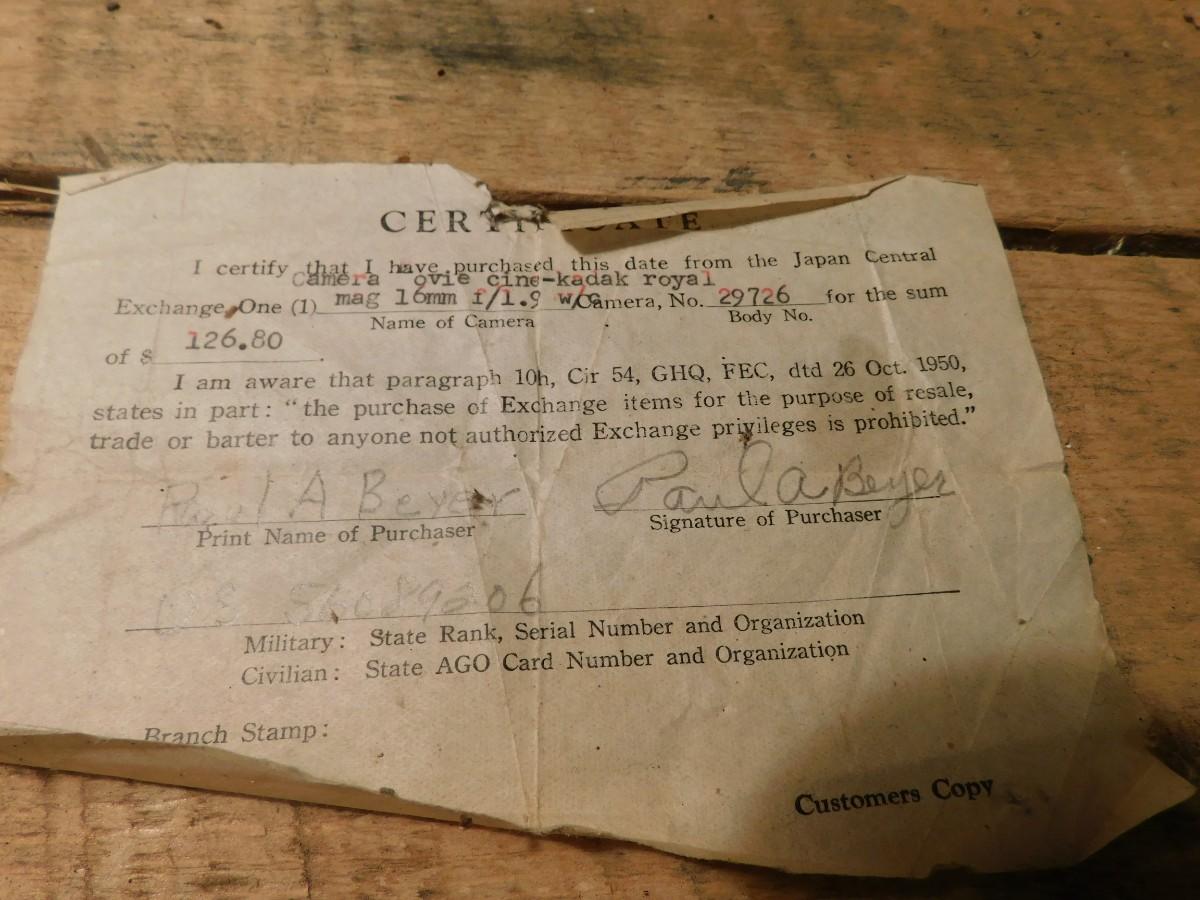 CERTIFICATE
I certify that I have purchased this date from the Japan Central
Camera ovie cine-kadak royal
Exchange, One (1) mag 16mm f/1.9 w/c Camera, No. 29726 for the sum
Name of Camera Body No.
of $ 126.80 .
I am aware that paragraph 10h, Cir 54, GHQ, FEC, dtd 26 Oct. 1950,
states in part: "the purchase of Exchange items for the purpose of resale,
trade or barter to anyone not authorized Exchange privileges is prohibited."
Paul A Beyer Paul A Beyer
Print Name of Purchaser Signature of Purchaser
US 56089206
Military: State Rank, Serial Number and Organization
Civilian: State AGO Card Number and Organization
Branch Stamp:
Customers Copy